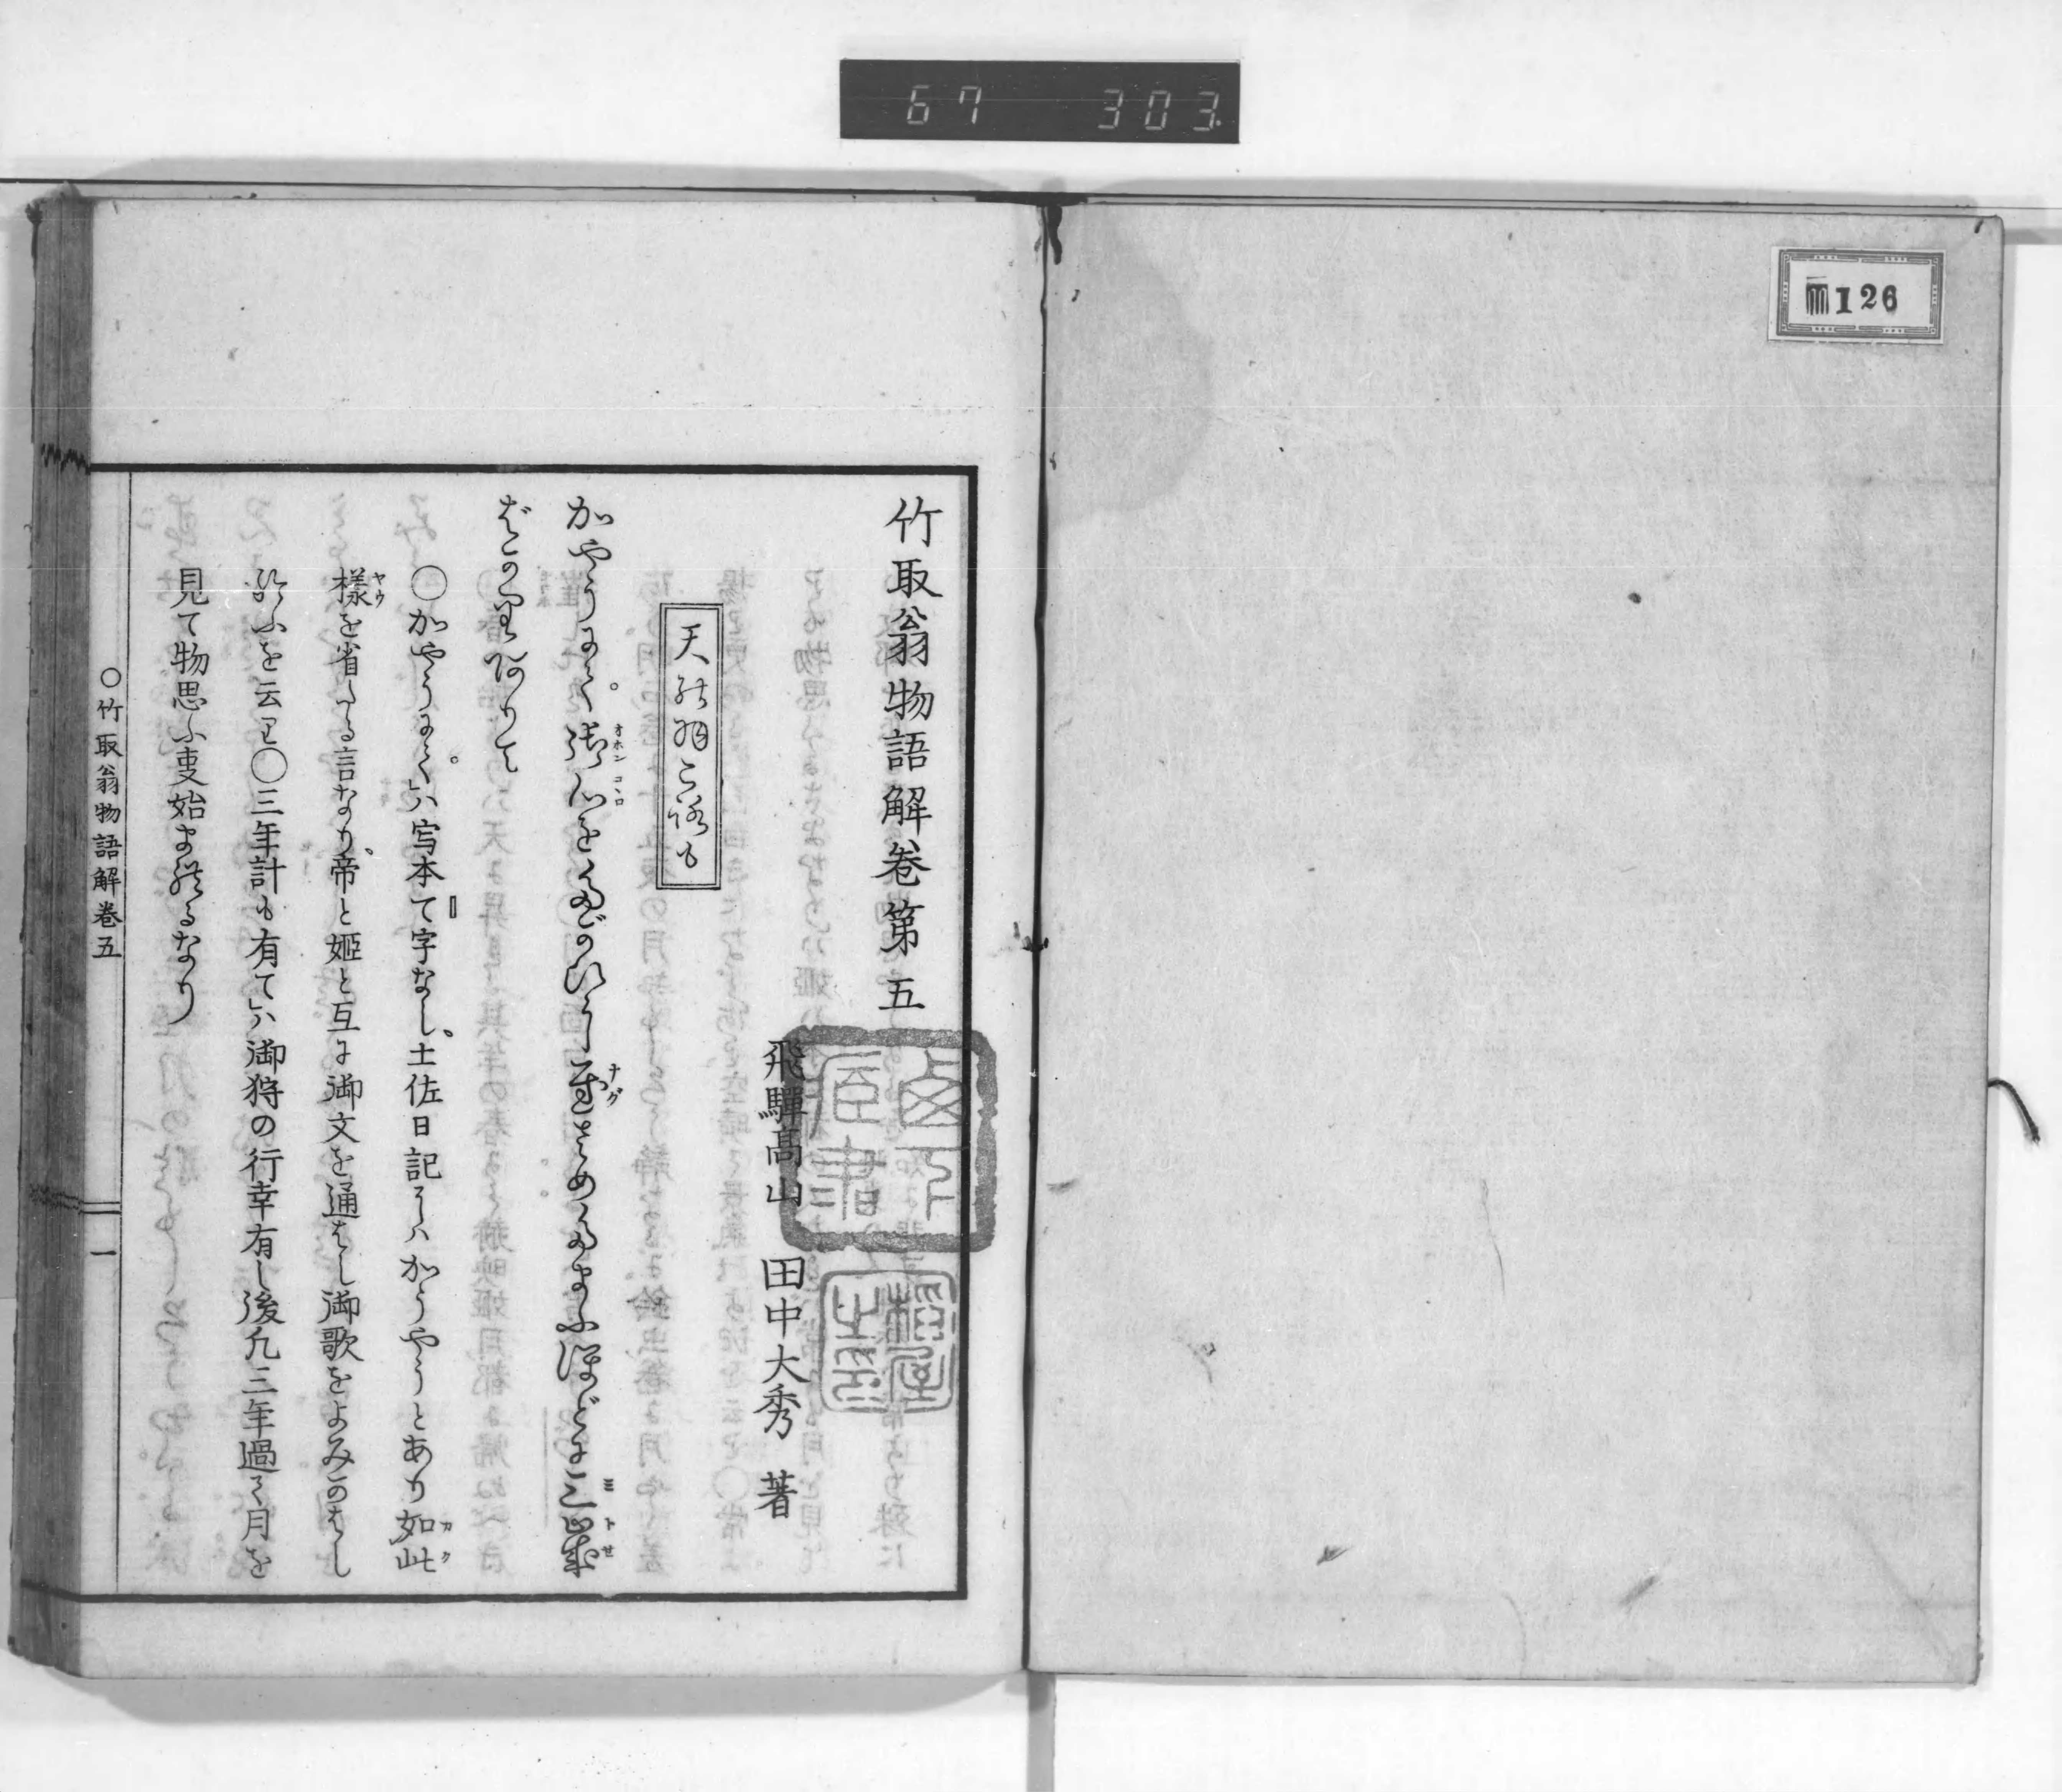 67 303
126
竹取翁物語解巻第五
飛騨高山 田中大秀 著
天の羽ころも
かやうにて。御心をたがひになぐさめたまふほどに三とせ
ばかりありて
〇かやうにて。ハ写本て字なし。土佐日記にハかうやうとあり如此
様を省ける言なり。帝と姫と互に御文を通はし御歌をよみかはし
給ふを云り〇三年計も有てハ御狩の行幸有し後凡三年過て月を
見て物思ふ事始まれるなり
〇竹取翁物語解巻五
一